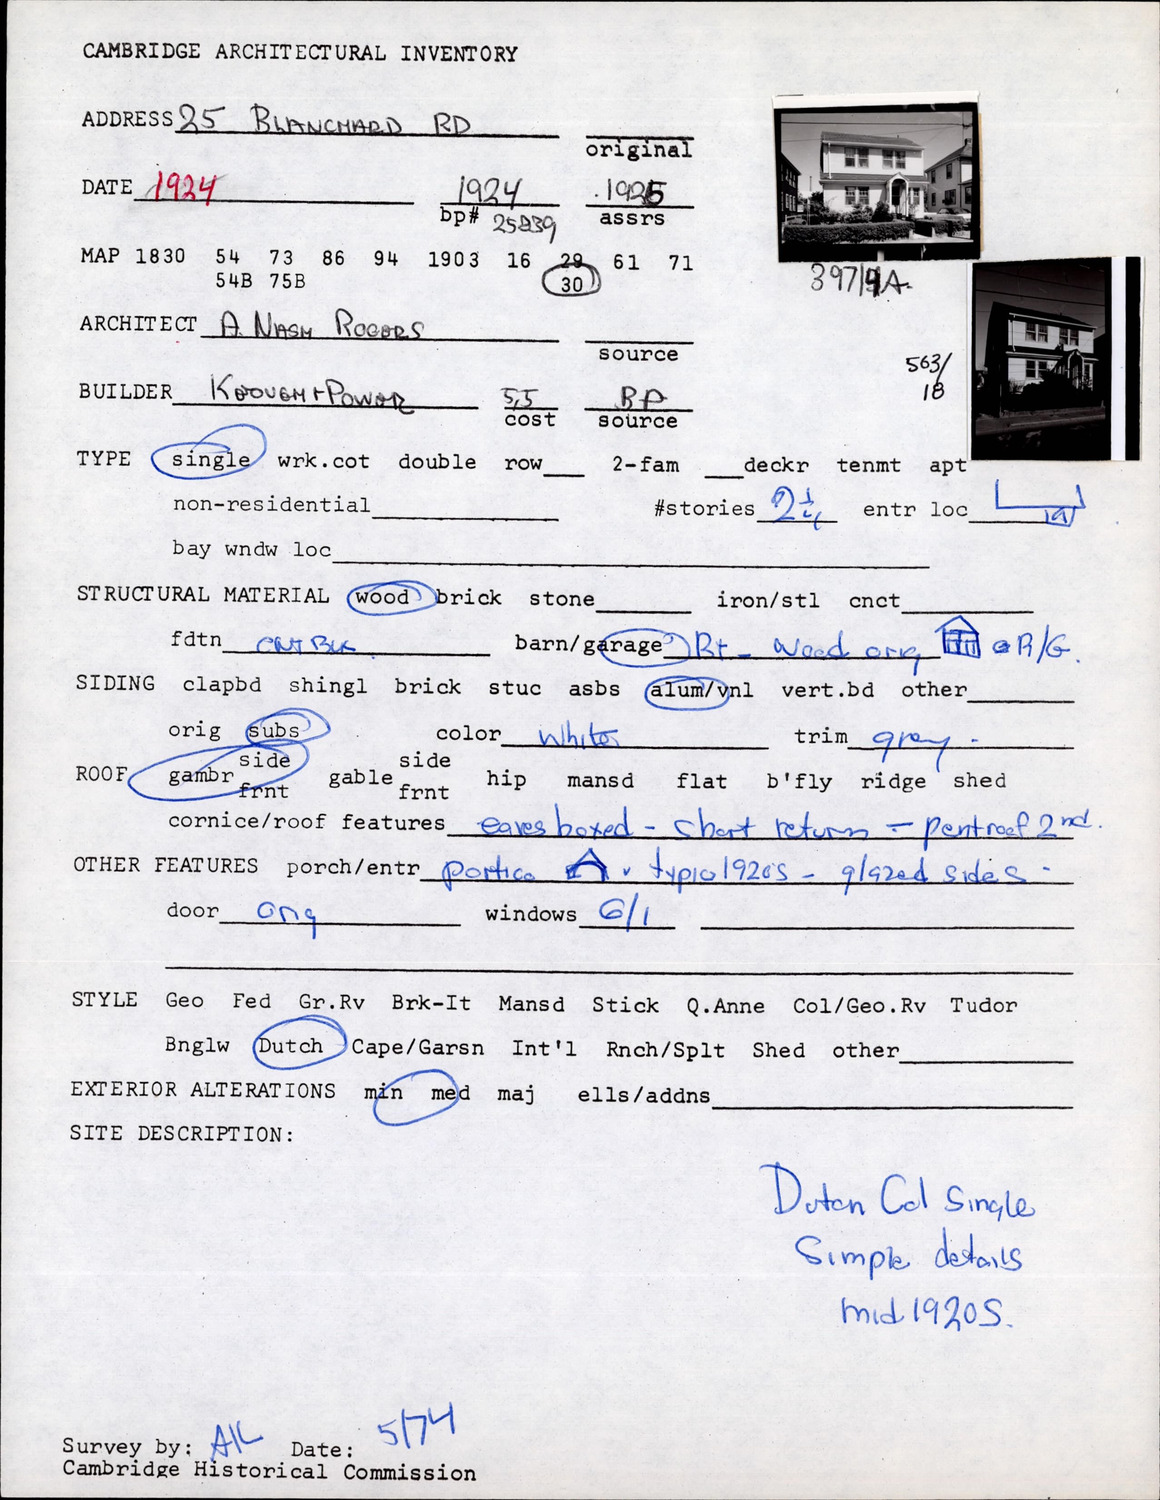 CAMBRIDGE ARCHITECTURAL INVENTORY
ADDRESS 25 BLANCHARD RD
original
DATE 1924 1924 1925
bp# 25839 assrs
MAP 1830 54 73 86 94 1903 16 29 61 71
54B 75B 30
397/4A
ARCHITECT A. NASH ROGERS
source
563/
18
BUILDER KEOUGH + POWER 5,5 BP
cost source
TYPE single wrk.cot double row 2-fam deckr tenmt apt
non-residential #stories 2 1/2 entr loc
bay wndw loc
STRUCTURAL MATERIAL wood brick stone iron/stl cnct
fdtn CNT BLK barn/garage Rt - wood orig @ R/G.
SIDING clapbd shingl brick stuc asbs alum/vnl vert.bd other
orig subs color white trim grey -
ROOF gambr side frnt gable side frnt hip mansd flat b'fly ridge shed
cornice/roof features eaves boxed - short return - pent roof 2nd.
OTHER FEATURES porch/entr portico typic 1920s - glazed sides -
door orig windows 6/1
STYLE Geo Fed Gr.Rv Brk-It Mansd Stick Q.Anne Col/Geo.Rv Tudor
Bnglw Dutch Cape/Garsn Int'l Rnch/Splt Shed other
EXTERIOR ALTERATIONS min med maj ells/addns
SITE DESCRIPTION:
Dutch Col Single
Simple details
mid 1920s.
Survey by: AK Date: 5/74
Cambridge Historical Commission